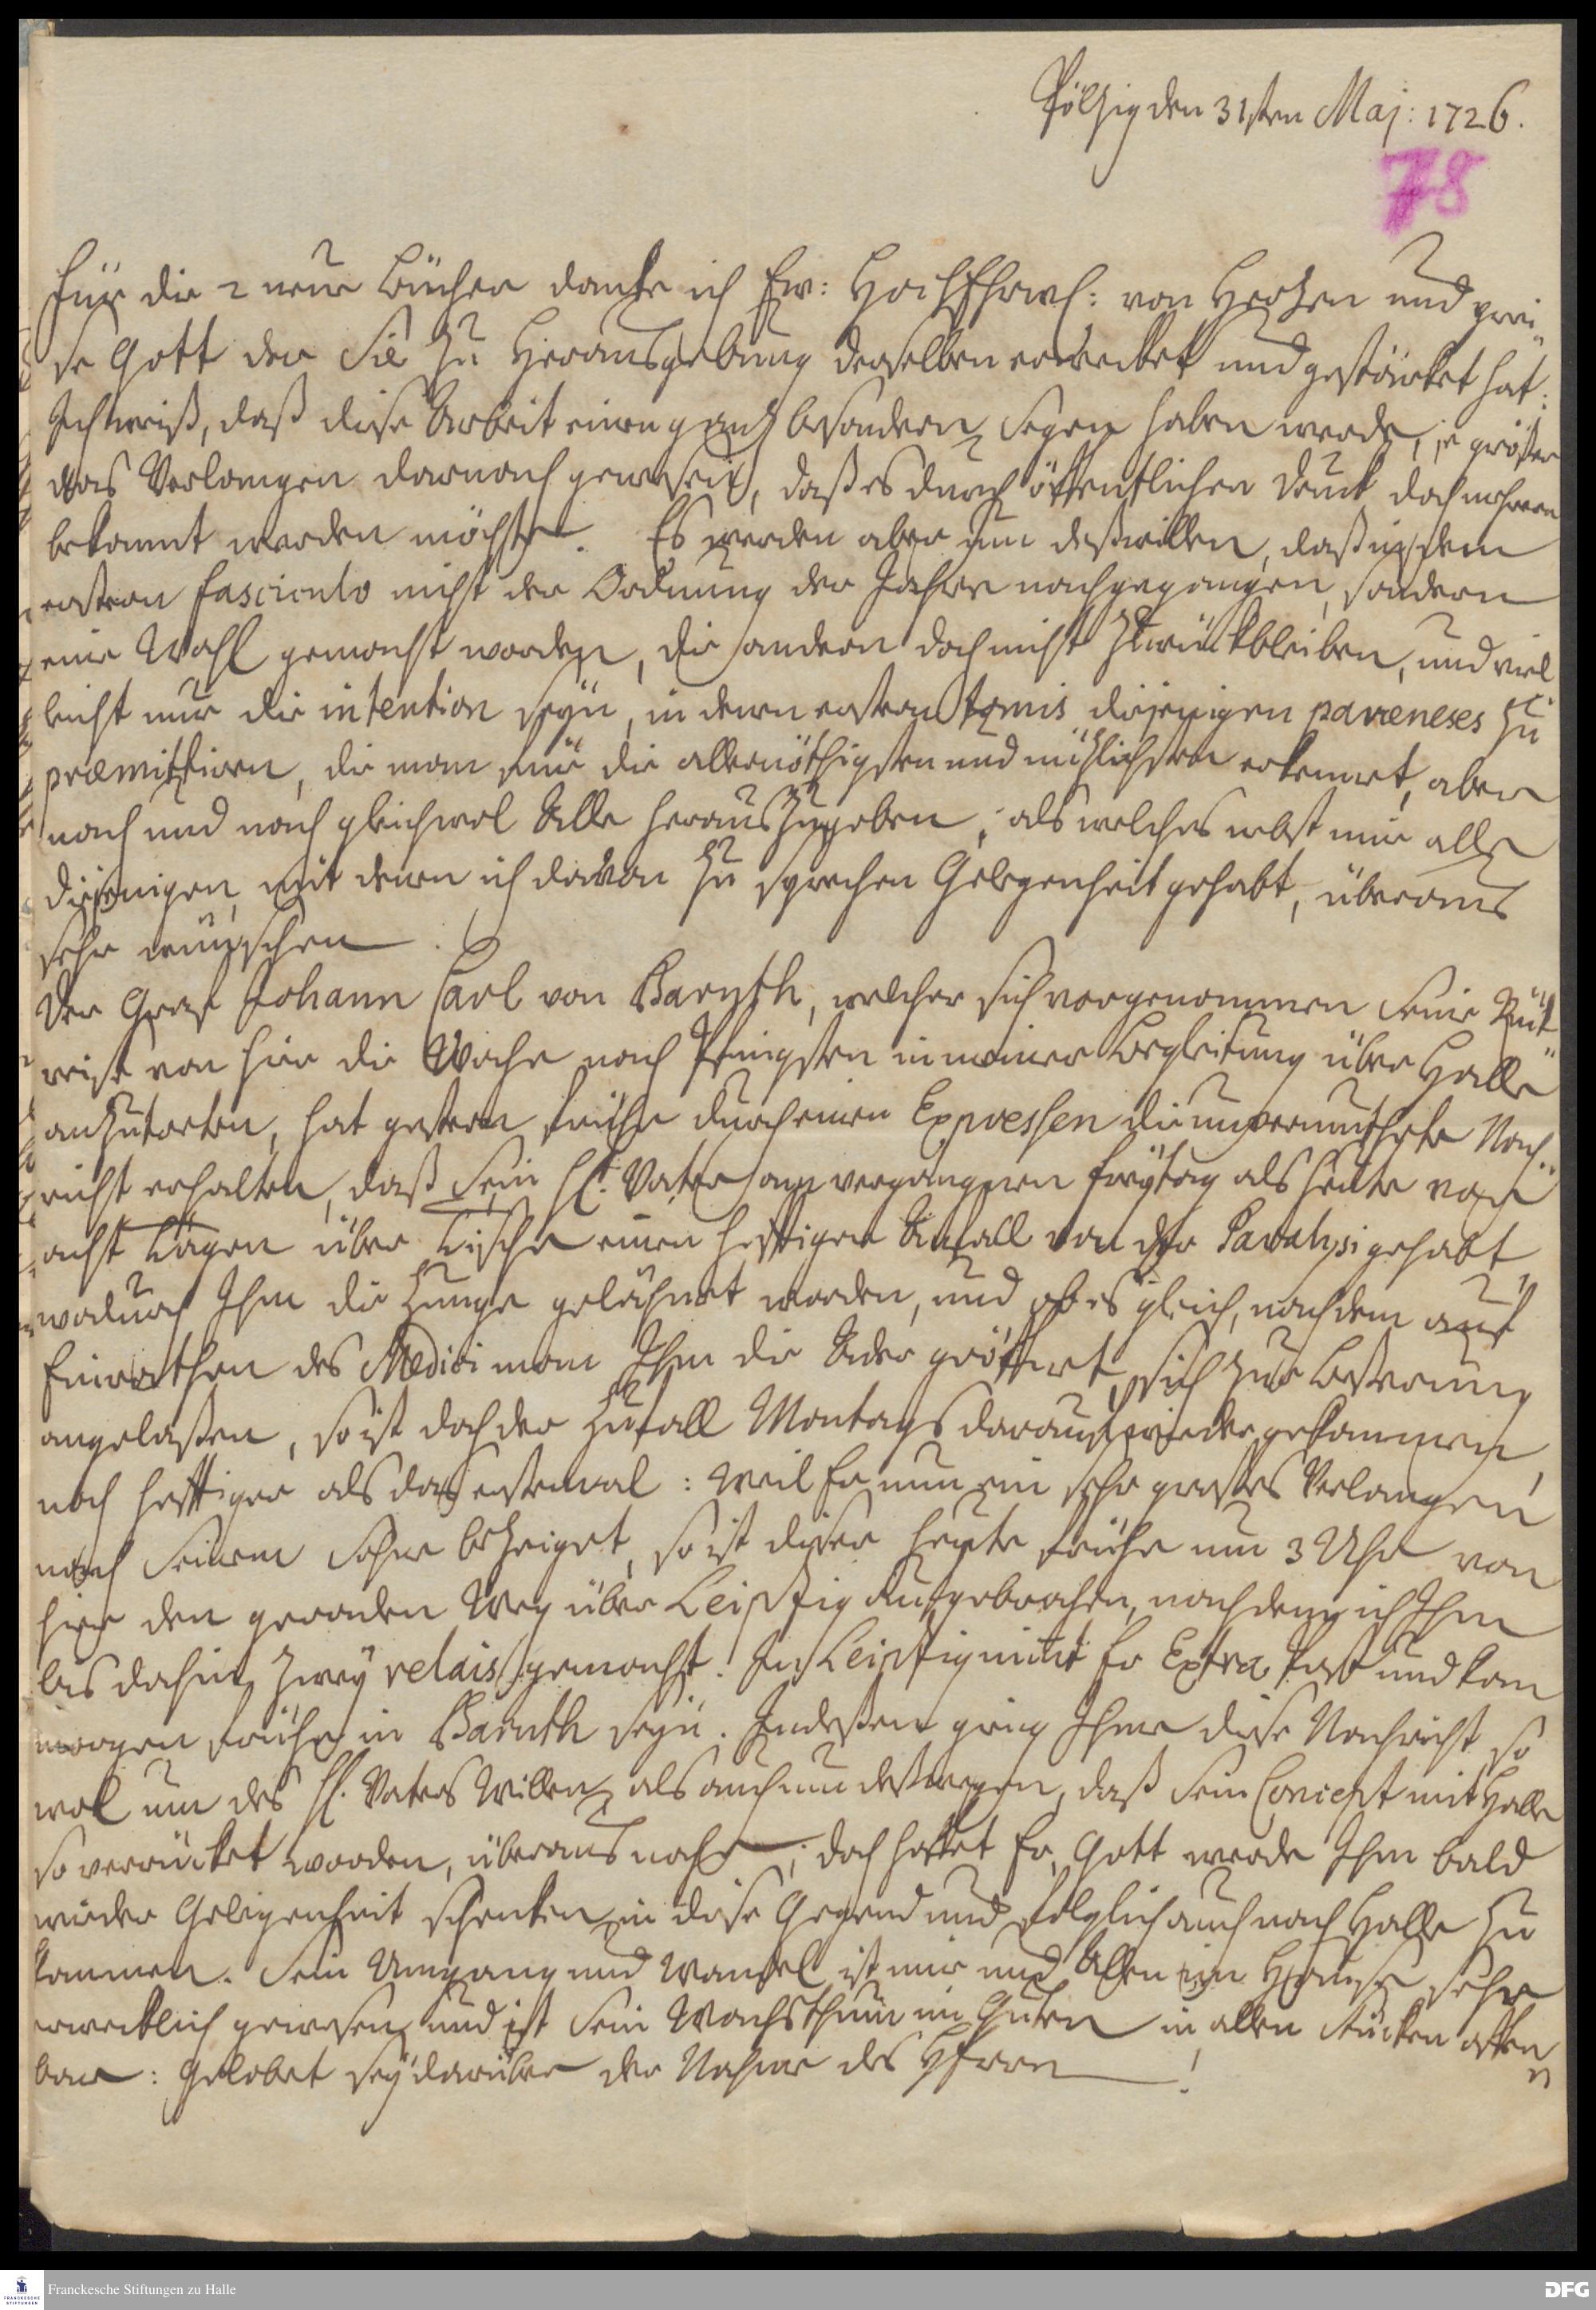 Pölzig den 31sten Maj: 1726.
78
Für die 2 neue Bücher dancke ich Ew: HochEhrw: von Hertzen und prei-
se Gott der Sie zu Herausgebung derselben erwecket und gestärcket hat:
Ich weiß, daß diese Arbeit einen gantz besondern Segen haben werde, je größer
das Verlangen darnach gewesen, daß es durch öffentlichen Druck doch mehrern
bekannt werden möchte. Es werden aber um deßwillen, daß in dem
ersten fasciculo nicht der Ordnung der Jahre nachgegangen, sondern
eine Wahl gemacht worden, die andern doch nicht zurückbleiben, und viel-
leicht nur die intention seyn, in denen ersten tomis diejenigen paræneses zu
præmittiren, die man für die allernöthigsten und nützlichsten erkennet, aber
nach und nach gleichwol Alle herauszugeben; als welches nebst mir alle
diejenigen, mit denen ich davon zu sprechen Gelegenheit gehabt, überaus
sehr wünschen.
Der Graf Johann Carl von Baruth, welcher sich vorgenommen seine Rück-
reise von hier die Woche nach Pfingsten in meiner Begleitung über Halle
anzutreten, hat gestern frühe durch einen Expressen die unvermuthete Nach-
richt erhalten, daß Sein H. Vater am vergangnen Freytag als heute vor
acht Tagen über Tische einen hefftigen Anfall von der Paralysi gehabt,
wodurch Ihm die Zunge gelähmet worden, und ob es gleich, nachdem auf
Einrathen des Medici man Ihm die Ader geöffnet, sich zur Beßerung
angelaßen, so ist doch der Zufall Montags darauf wieder gekommen,
noch hefftiger als das erstemal: Weil Er nun ein sehr großes Verlangen
nach Seinem Sohne bezeiget, so ist dieser heute frühe um 3 Uhr von
hier den geraden Weg über Leipzig aufgebrochen, nachdem ich Ihm
bis dahin zwey relais gemacht. In Leipzig nimt Er Extra Post und kan
morgen frühe in Baruth seyn. Indeßen ging Ihme diese Nachricht so
wol um des H. Vaters Willen, als auch um deßwegen, daß Sein Concept mit Halle
so verrücket worden, überaus nahe; doch hoffet Er, Gott werde Ihm bald
wieder Gelegenheit schencken in diese Gegend und folglich auch nach Halle zu
kommen. Sein Umgang und Wandel ist mir und Allen im Hause sehr
erwecklich gewesen, und ist Sein Wachsthum im Guten in allen Stücken offen-
bar: Gelobet sey darüber der Nahme des HErrn!
Franckesche Stiftungen zu Halle
DFG